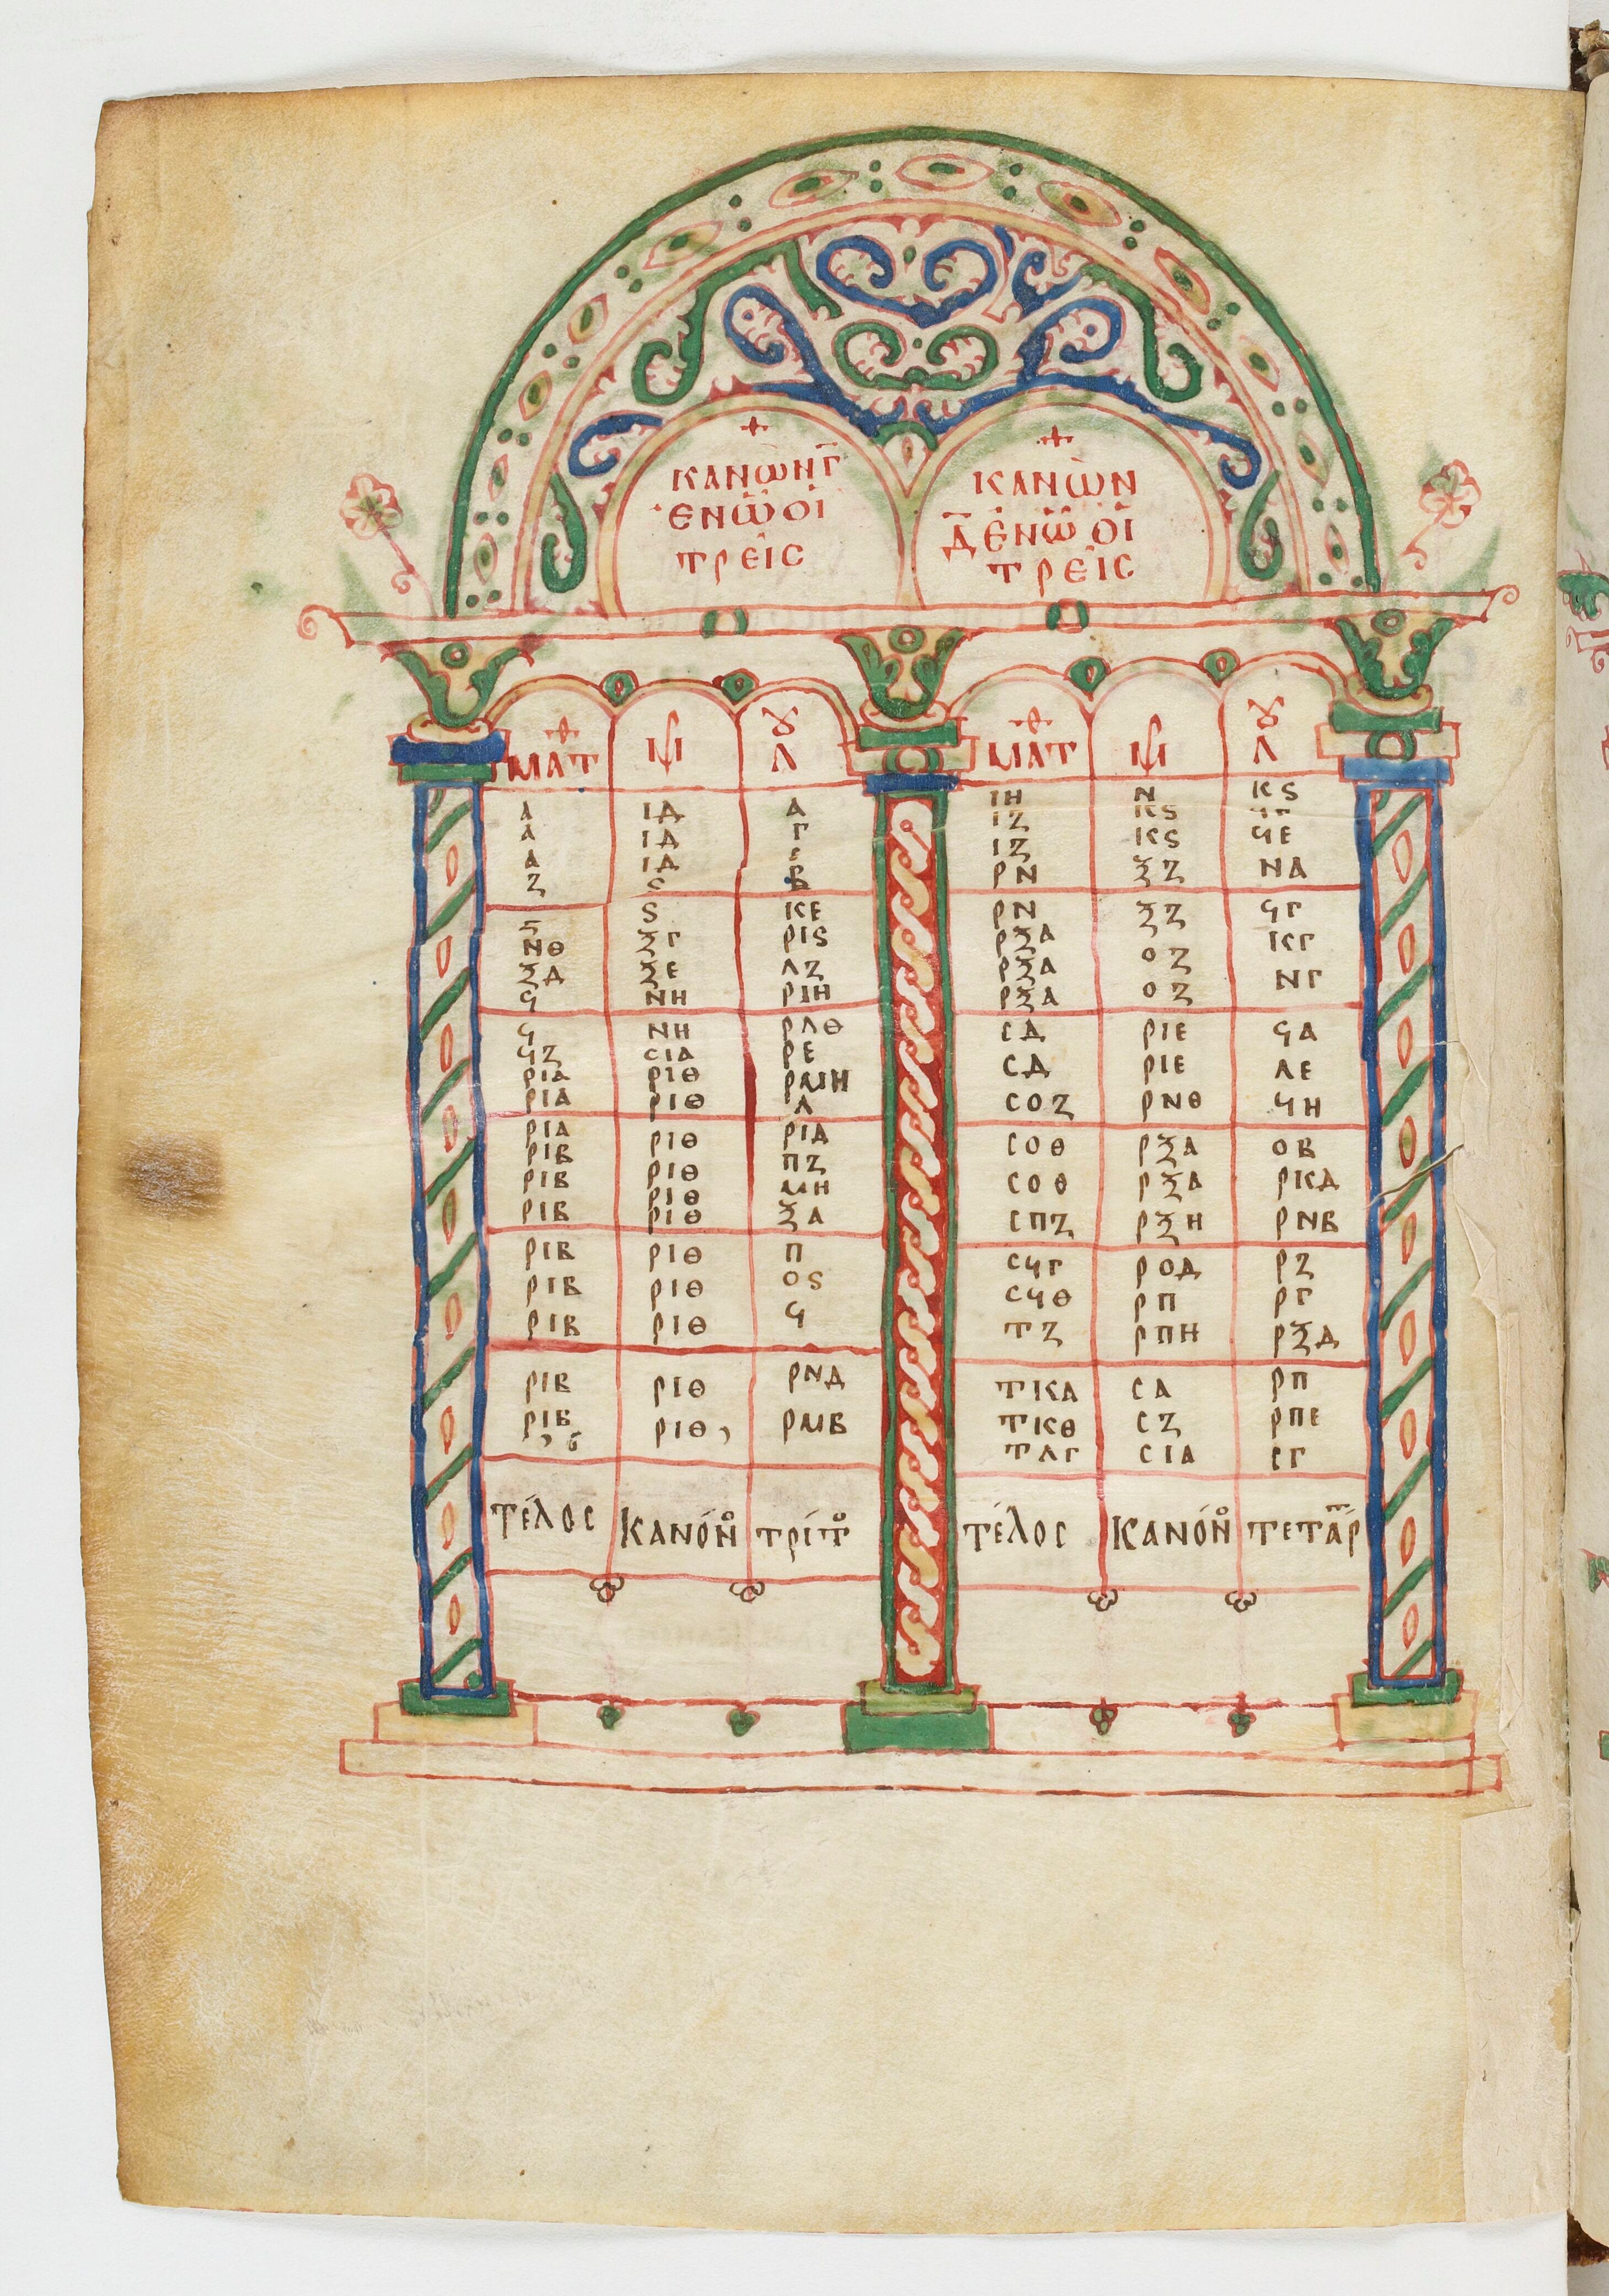 +
ΚΑΝΩΝ Γ̅
ΕΝ Ω ΟΙ
ΤΡΕΙϹ
ΜΑΤΘ ΛȢ
Α ΙΔ Α
Α ΙΔ Γ
Α ΙΔ Ε
Ζ Ϛ Β
Ζ Ϛ ΚΕ
ΝΘ ΞΓ ΡΙϚ
ΞΔ ΞΕ ΛΖ
Ϥ ΝΗ ΡΙΗ
Ϥ ΝΗ ΡΛΘ
ϤΖ ϹΙΑ ΡΕ
ΡΙΑ ΡΙΘ ΡΜΗ
ΡΙΑ ΡΙΘ Λ
ΡΙΑ ΡΙΘ ΡΙΔ
ΡΙΒ ΡΙΘ ΠΖ
ΡΙΒ ΡΙΘ ΜΗ
ΡΙΒ ΡΙΘ ΞΑ
ΡΙΒ ΡΙΘ Π
ΡΙΒ ΡΙΘ ΟϚ
ΡΙΒ ΡΙΘ Ϥ
ΡΙΒ ΡΙΘ ΡΝΔ
ΡΙΒ ΡΙΘ ΡΜΒ
Τέλος ΚΑΝόΝº ΤΡίΤº
+
ΚΑΝΩΝ
Δ̅ ΕΝ Ω ΟΙ
ΤΡΕΙϹ
ΜΑΤΘ ΛȢ
ΙΗ Ν ΚϚ
ΙΖ ΚϚ ϤΓ
ΙΖ ΚϚ ϤΕ
ΡΝ ΞΖ ΝΑ
ΡΝ ΞΖ ϤΓ
ΡΞΑ ΟΖ ΚΓ
ΡΞΑ ΟΖ ΝΓ
ΡΞΑ
ϹΔ ΡΙΕ ϤΑ
ϹΔ ΡΙΕ ΛΕ
ϹΟΖ ΡΝΘ ϤΗ
ϹΟΘ ΡΞΑ ΟΒ
ϹΟΘ ΡΞΑ ΡΚΔ
ϹΠΖ ΡΞΗ ΡΝΒ
ϹϤΓ ΡΟΔ ΡΖ
ϹϤΘ ΡΠ ΡΓ
ΤΖ ΡΠΗ ΡΞΔ
ΤΚΑ ϹΑ ΡΠ
ΤΚΘ ϹΖ ΡΠΕ
ΤΛΓ ϹΙΑ ϹΓ
Τέλος ΚΑΝόΝº ΤΕΤάΡ